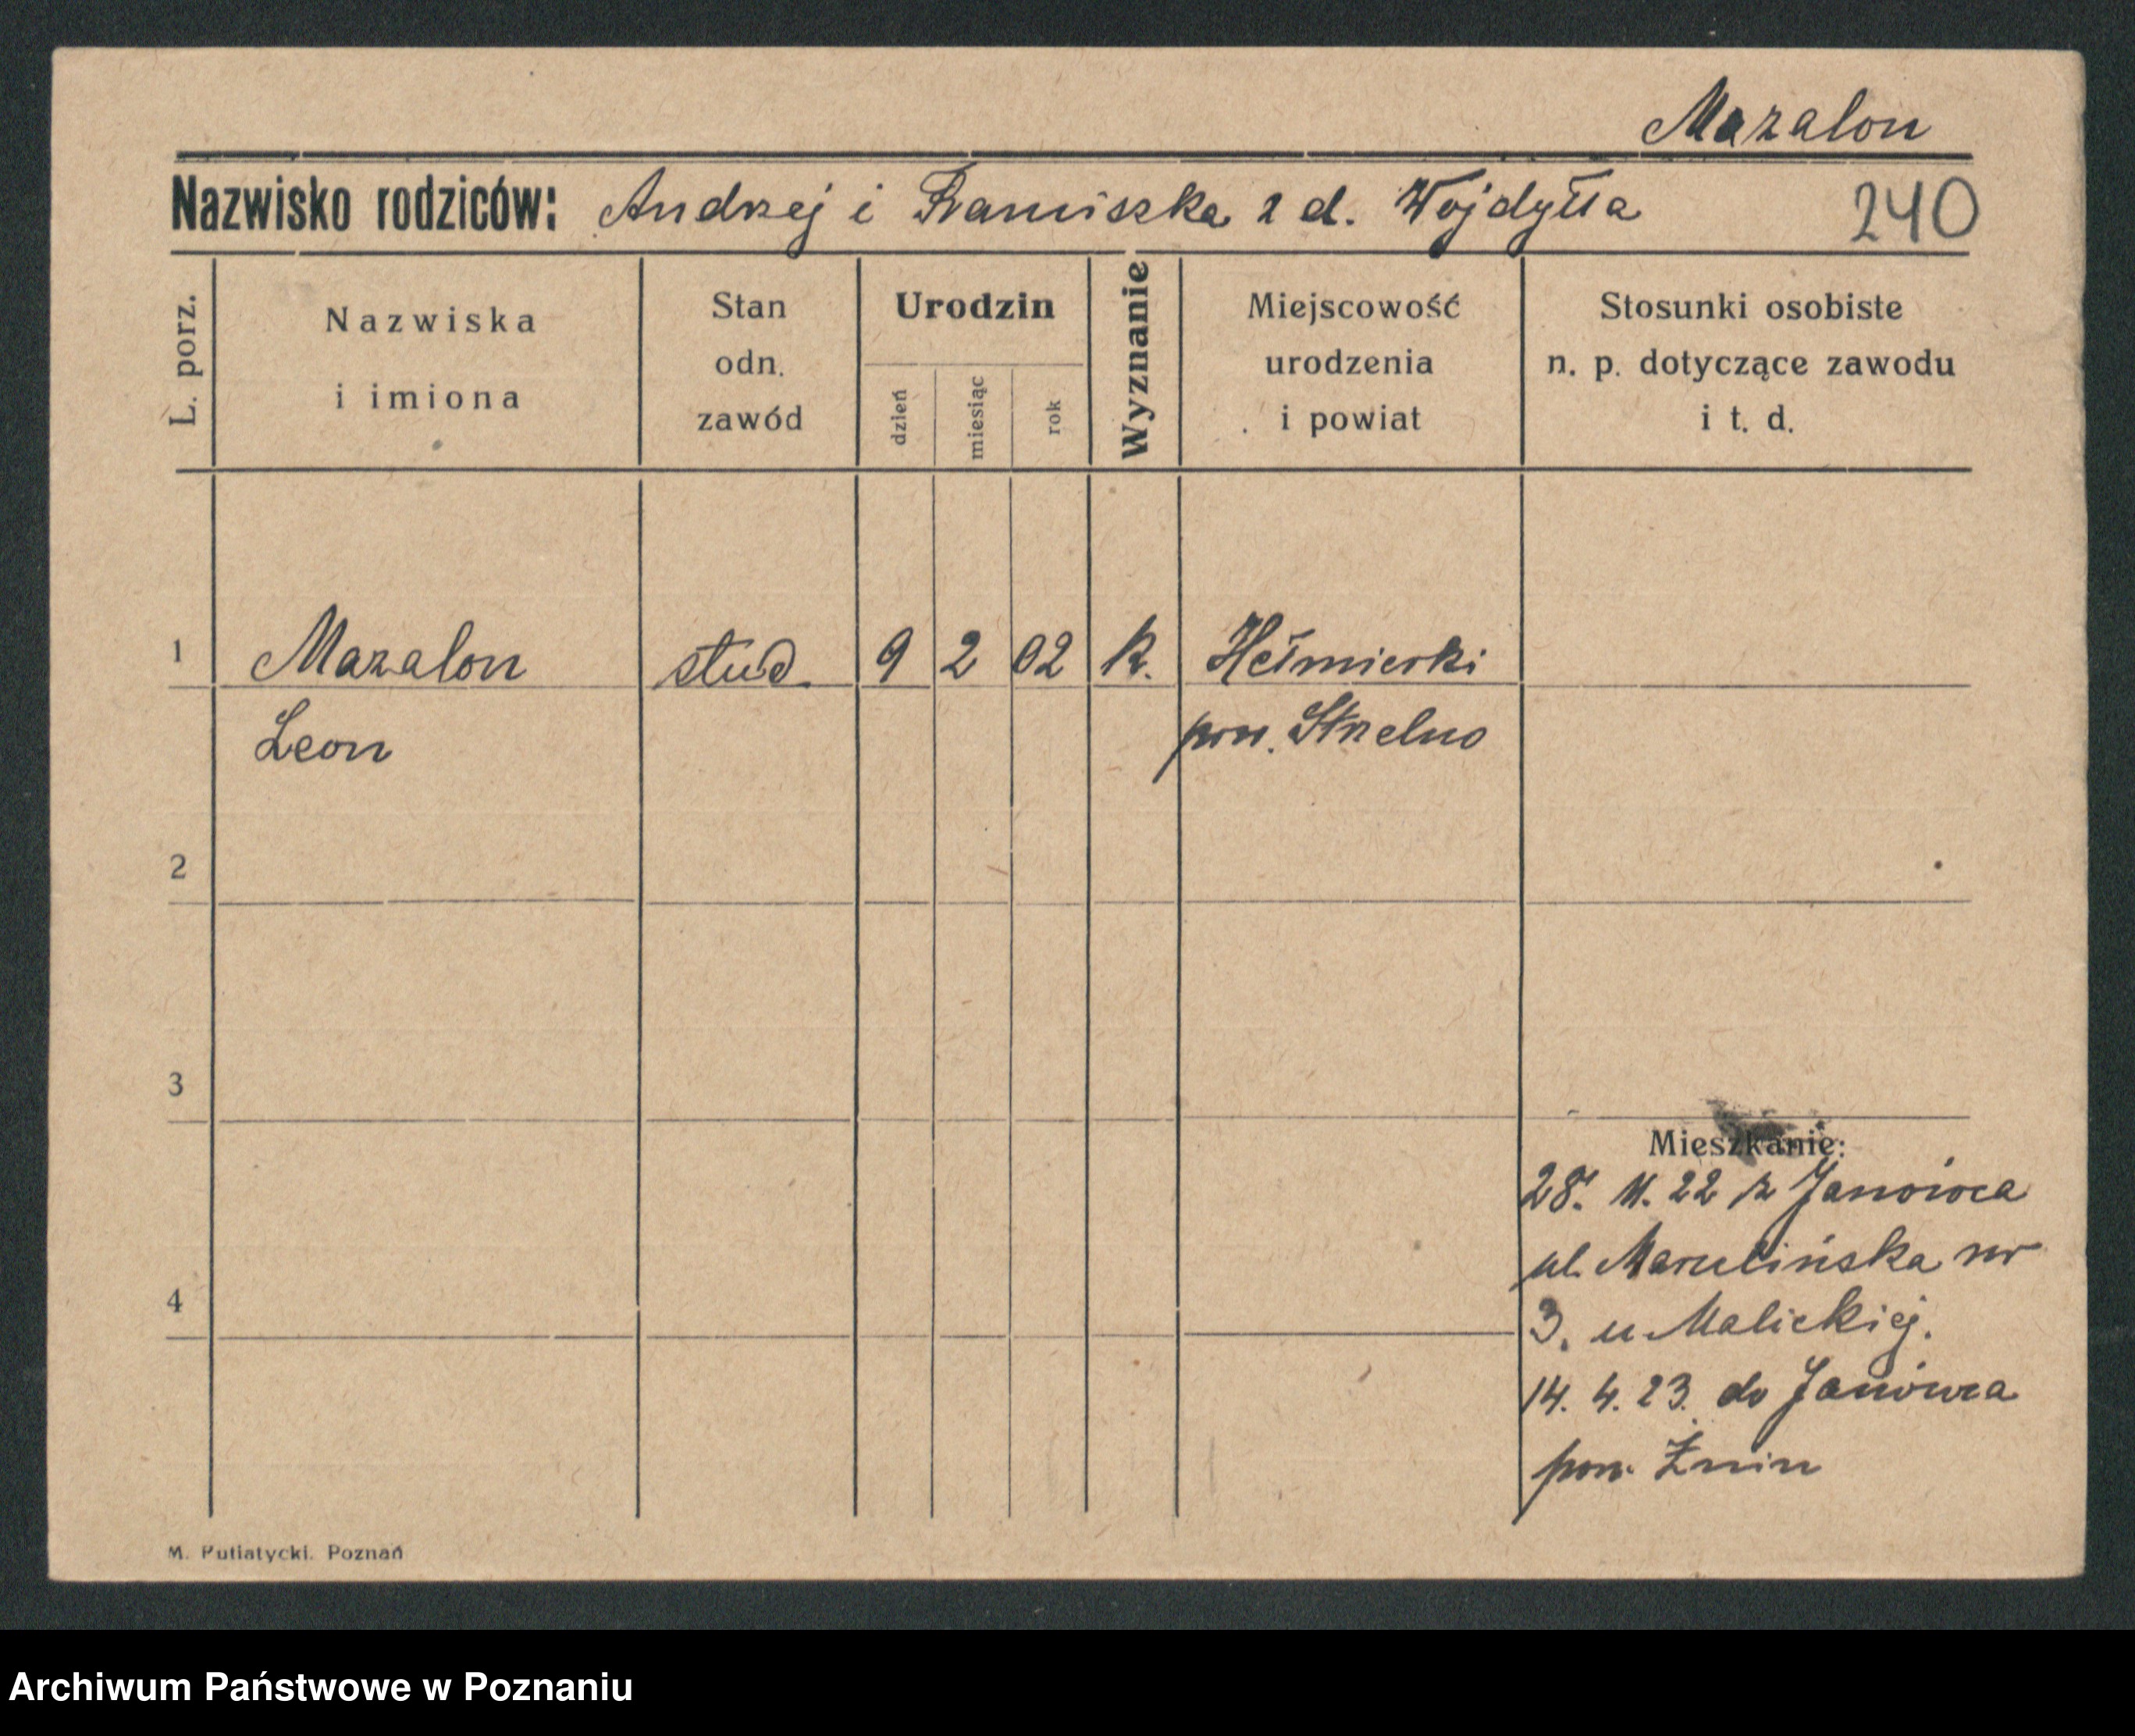 Mazalon
Nazwisko rodziców: Andrzej i Franciszka z d. Wojdyłła 240
L. porz.
Nazwiska
i imiona
Stan
odn.
zawód
Urodzin
dzień
miesiąc
rok
Wyznanie
Miejscowość
urodzenia
i powiat
Stosunki osobiste
n. p. dotyczące zawodu
i t. d.
1 Mazalon stud. 9 2 02 k. Hełmierki
Leon pow. Strzelno
2
3
Mieszkanie:
28. 11. 22 z Janówca
ul. nr
4
3. u Malickiej.
14. 4. 23. do Janówca
pow. Żnin
M. Putiatycki. Poznań
Archiwum Państwowe w Poznaniu